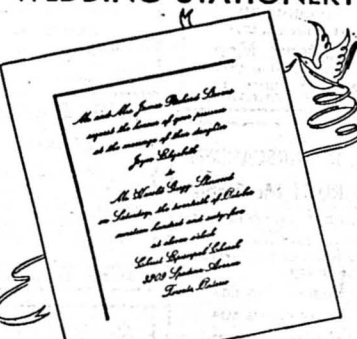 WEDDING STATIONERY
Mr. and Mrs. James Richard
request the honour of your presence
at the marriage of their daughter
Joyce Elizabeth
to
Mr. Harold Gregg
on Saturday, the twentieth of October
nineteen hundred and sixty-five
at eleven o'clock
Episcopal Church
3909 Avenue
Toronto, Ontario